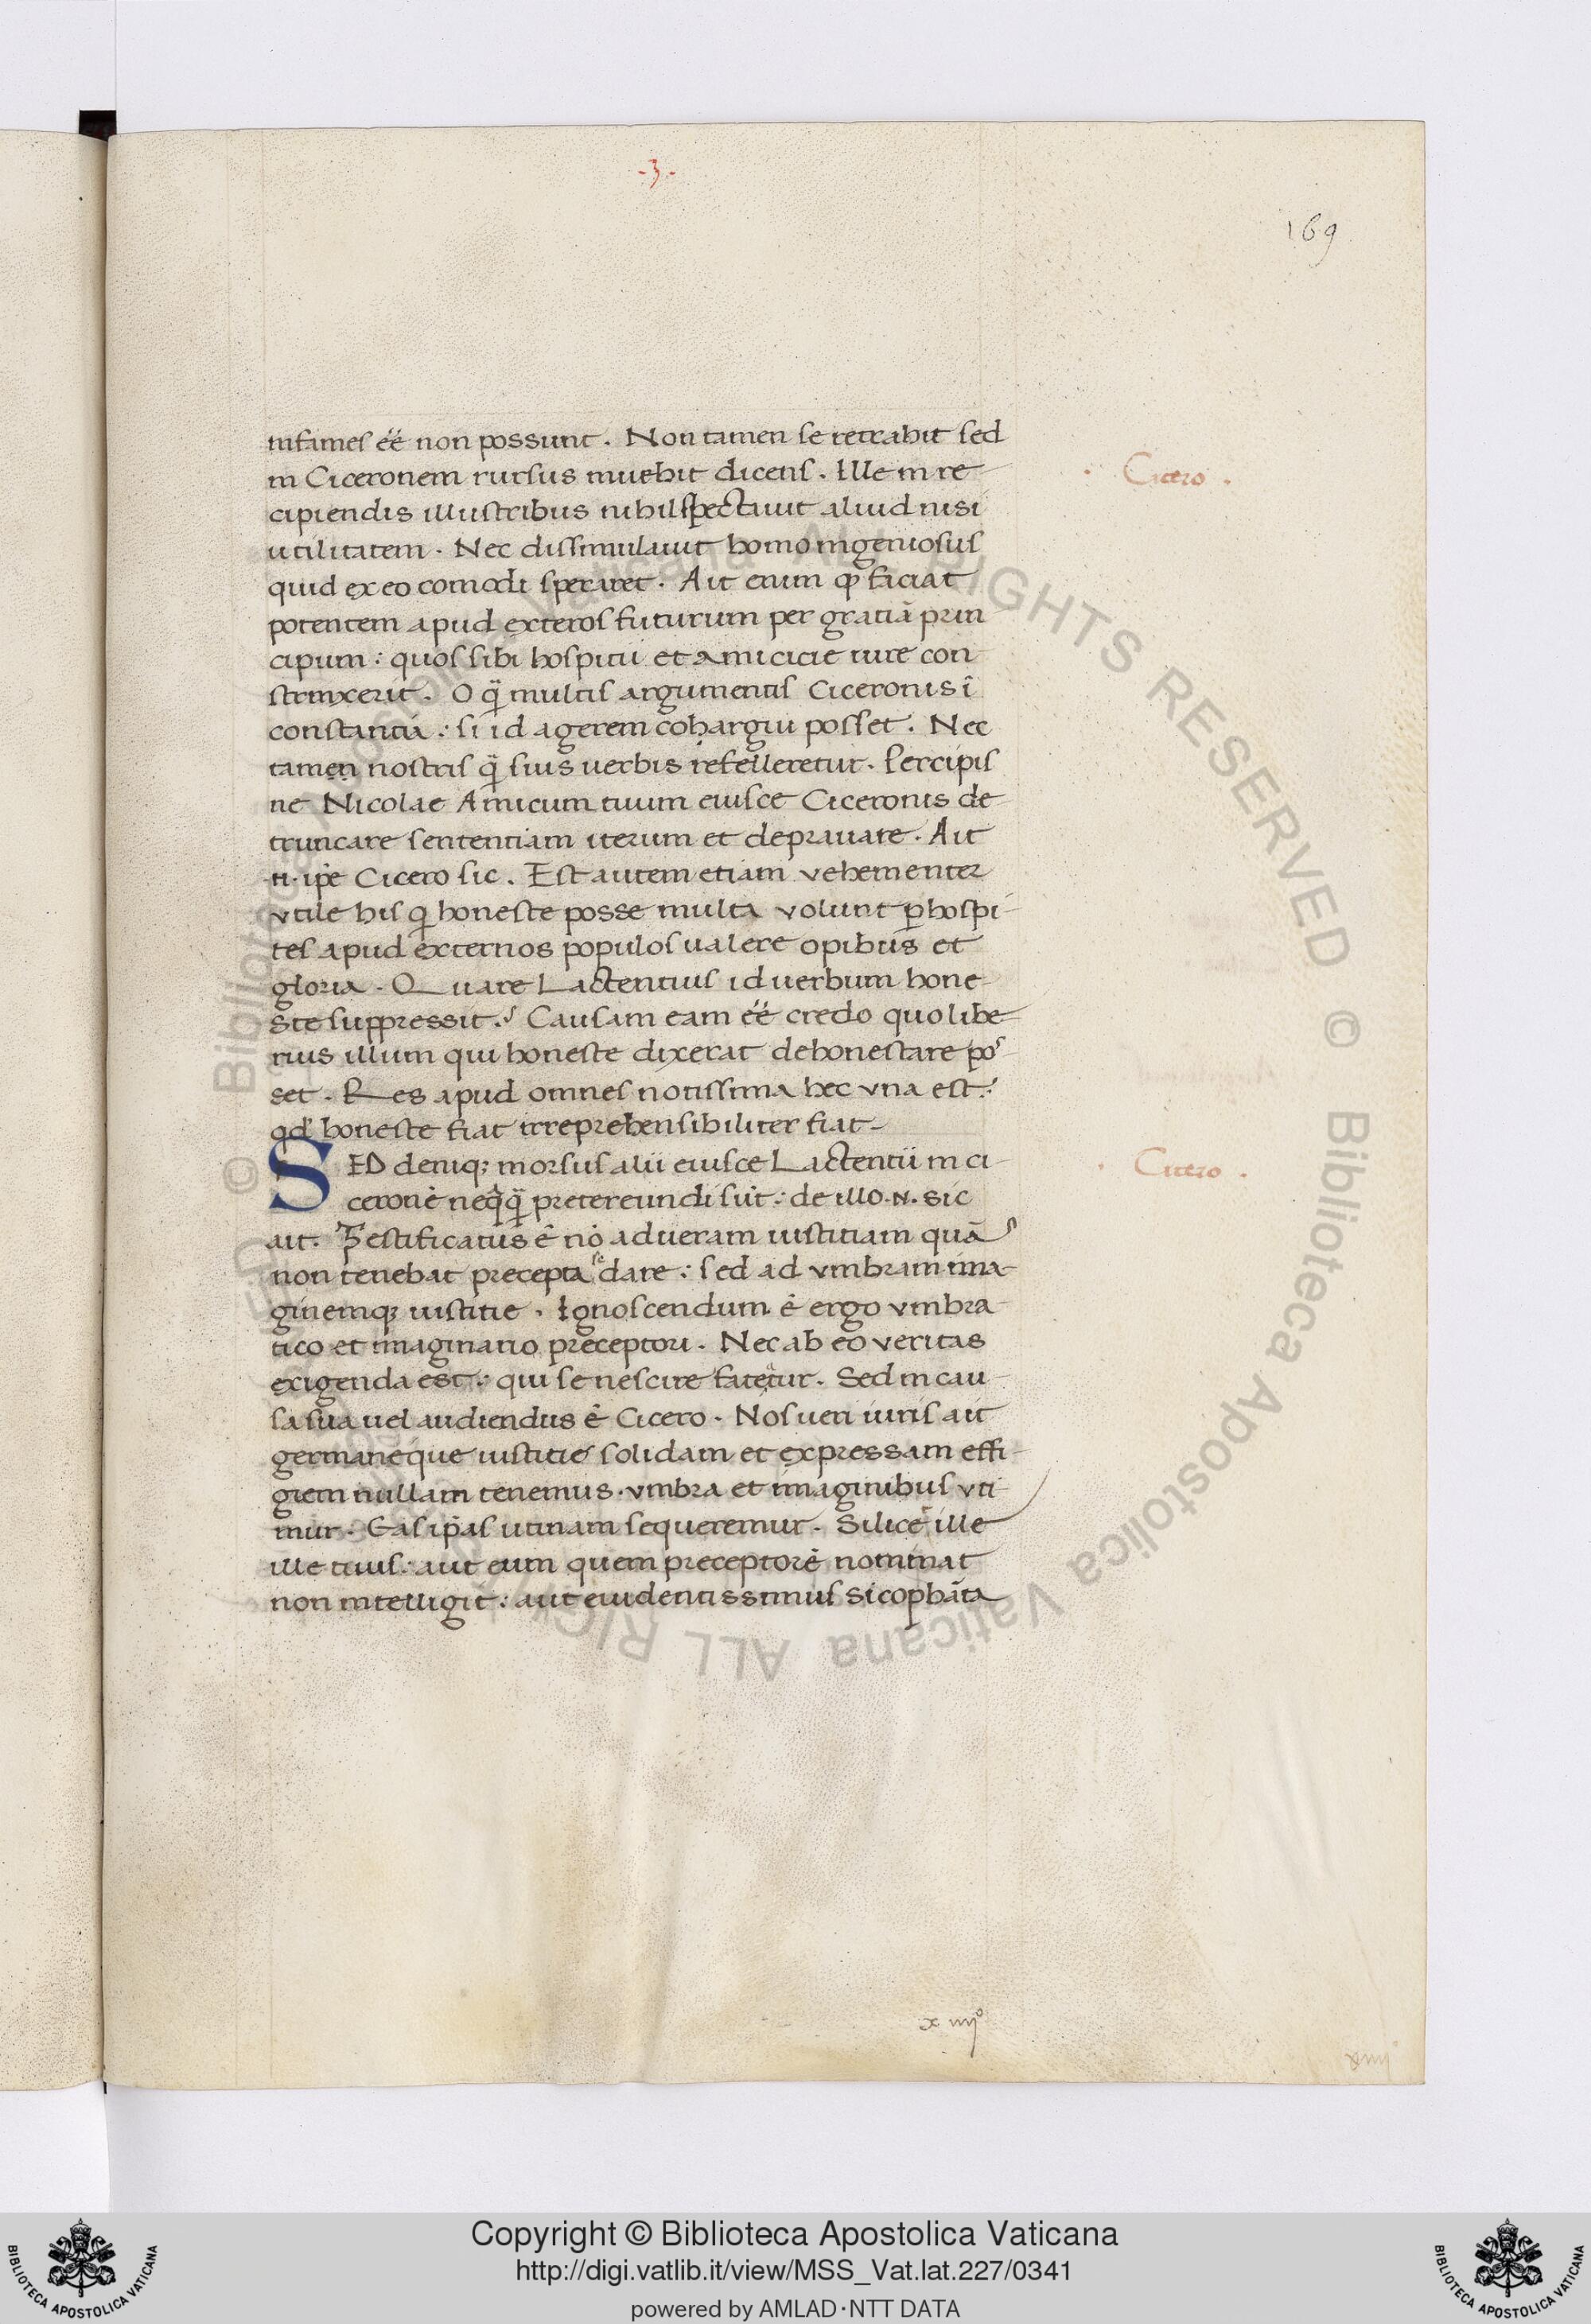 -3-
169
infames éé non possunt. Non tamen se retrahit sed
in Ciceronem rursus inuehit dicens. Ille in re
Cicero.
cipiendis illustribus nihil spectauit aliud nisi
utilitatem. Nec dissimulauit homo ingeniosus
quid ex eo comodi speraret. Ait enim ꝙ faciat
potentem apud exteros futurum per gratiā prin
cipum: quos sibi hospitii et amicicie iure con
strinxerit. O q̄ multis argumentis Ciceronis ī
constantia: si id agerem cohargui posset. Nec
tamen nostris q̄ suis uerbis refelleretur. Percipis
ne Nicolae Amicum tuum eiusce Ciceronis de
truncare sententiam iterum et deprauare. Ait
.n. ip̄e Cicero sic. Est autem etiam vehementer
vtile his q̄ honeste posse multa volunt ꝑ hospi-
tes apud externos populos ualere opibus et
gloria. Quare Lactentius id uerbum hone
ste suppressit? Causam eam éé credo quo libe
rius illum qui honeste dixerat dehonestare pos
set. Res apud omnes notissima hec vna est:
qd' honeste fiat irreprehensibiliter fiat-
SED deniq; morsus alii eiusce Lactentii in ci-
Cicero.
ceronē neq̄q̄ pretereundi sūt: de illo .N. sic
ait. Testificatus ē nō ad ueram iustitiam quā
non tenebat precepta se dare: sed ad vmbram ima-
ginemq; iustitie. Ignoscendum ē ergo vmbra
tico et imaginario preceptori. Nec ab eo veritas
exigenda est: qui se nescire fateatur. Sed in cau-
sa sua uel audiendus ē Cicero. Nos ueri iuris ait
germaneque iustitie solidam et expressam effi-
giem nullam tenemus. vmbra et imaginibus vti
mur. Eas ip̄as utinam sequeremur. Silicē ille
ille tuus: aut eum quem preceptorē nominat
non intelligit: aut euidentissimus sicophāta
x iiijº
xiiij
© Biblioteca Apostolica Vaticana ALL RIGHTS RESERVED © Biblioteca Apostolica Vaticana ALL RIGHTS RESERVED
Copyright © Biblioteca Apostolica Vaticana
http://digi.vatlib.it/view/MSS_Vat.lat.227/0341
powered by AMLAD·NTT DATA
BIBLIOTECA APOSTOLICA VATICANA
BIBLIOTECA APOSTOLICA VATICANA